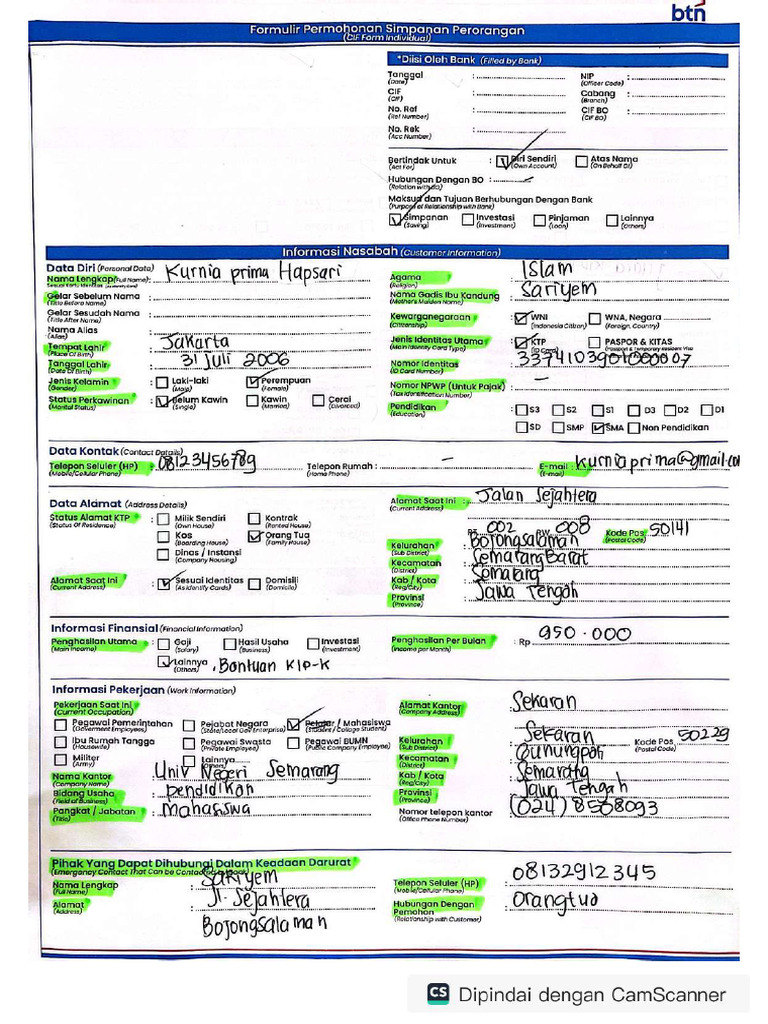 btn
Formulir Permohonan Simpanan Perorangan
(CIF Form Individual)
*Diisi Oleh Bank (Filled by Bank)
Tanggal : NIP :
(Date) (Officer Code)
CIF : Cabang :
(CIF) (Branch)
No. Ref : CIF BO :
(Ref Number) (CIF BO)
No. Rek :
(Acc Number)
Bertindak Untuk : Diri Sendiri Atas Nama
(Act For) (Own Account) (On Behalf Of)
Hubungan Dengan BO : -
(Relation with Bo)
Maksud dan Tujuan Berhubungan Dengan Bank
(Purpose of Relationship with Bank)
Simpanan Investasi Pinjaman Lainnya
(Saving) (Investment) (Loan) (Others)
Informasi Nasabah (Customer Information)
Data Diri (Personal Data)
Nama Lengkap (Full Name) : Kurnia prima Hapsari
Gelar Sebelum Nama :
(Title Before Name)
Gelar Sesudah Nama :
(Title After Name)
Nama Alias :
(Alias)
Tempat Lahir : Jakarta
(Place Of Birth)
Tanggal Lahir : 31 Juli 2006
(Date Of Birth)
Jenis Kelamin : Laki-laki Perempuan
(Gender) (Male) (Female)
Status Perkawinan : Belum Kawin Kawin Cerai
(Marital Status) (Single) (Married) (Divorced)
Agama : Islam
(Religion)
Nama Gadis Ibu Kandung : Sariyem
(Mother's Maiden Name)
Kewarganegaraan : WNI WNA, Negara
(Citizenship) (Indonesia Citizen) (Foreign, Country)
Jenis Identitas Utama : KTP PASPOR & KITAS
(Main Identity Card Type) (ID Card) (Passport & Temporary Resident Visa)
Nomor Identitas : 3374103901000007
(ID Card Number)
Nomor NPWP (Untuk Pajak) : -
(Tax Identification Number)
Pendidikan : S3 S2 S1 D3 D2 D1
(Education)
SD SMP SMA Non Pendidikan
Data Kontak (Contact Details)
Telepon Seluler (HP) : 08123456789 Telepon Rumah : - E-mail : kurniaprima@gmail.com
(Mobile/Cellular Phone) (Home Phone) (E-mail)
Data Alamat (Address Details)
Status Alamat KTP : Milik Sendiri Kontrak
(Status Of Residence) (Own House) (Rented House)
Kos Orang Tua
(Boarding House) (Family House)
Dinas / Instansi
(Company Housing)
Alamat Saat Ini : Sesuai Identitas Domisili
(Current Address) (As Identify Cards) (Domicile)
Alamat Saat Ini : Jalan Sejahtera
(Current Address)
RT 002 RW 008
Kelurahan : Bojongsalaman Kode Pos 50141
(Sub District) (Postal Code)
Kecamatan : Semarang Barat
(District)
Kab / Kota : Semarang
(Reg/City)
Provinsi : Jawa Tengah
(Province)
Informasi Finansial (Financial Information)
Penghasilan Utama : Gaji Hasil Usaha Investasi
(Main Income) (Salary) (Business) (Investment)
Lainnya , Bantuan KIP-K
(Others)
Penghasilan Per Bulan : Rp 950.000
(Income per Month)
Informasi Pekerjaan (Work Information)
Pekerjaan Saat Ini :
(Current Occupation)
Pegawai Pemerintahan Pejabat Negara Pelajar / Mahasiswa
(Goverment Employees) (State/Local Gov Enterprise) (Student / Collage Student)
Ibu Rumah Tangga Pegawai Swasta Pegawai BUMN
(Housewife) (Private Employee) (Public Company Employee)
Militer Lainnya
(Army) (Others)
Nama Kantor : Univ Negeri Semarang
(Company Name)
Bidang Usaha : pendidikan
(Field of Business)
Pangkat / Jabatan : Mahasiswa
(Title)
Alamat Kantor : Sekaran
(Company Address)
Kelurahan : Sekaran Kode Pos 50229
(Sub District) (Postal Code)
Kecamatan : Gunungpati
(District)
Kab / Kota : Semarang
(Reg/City)
Provinsi : Jawa Tengah
(Province)
Nomor telepon kantor : (024) 8508093
(Office Phone Number)
Pihak Yang Dapat Dihubungi Dalam Keadaan Darurat
(Emergency Contact That Can be Contacted
Nama Lengkap : Sariyem
(Full Name)
Alamat : Jl. Sejahtera
(Address)
Bojongsalaman
Telepon Seluler (HP) : 081332912345
(Mobile/Cellular Phone)
Hubungan Dengan Pemohon : Orangtua
(Relationship with Customer)
CS Dipindai dengan CamScanner